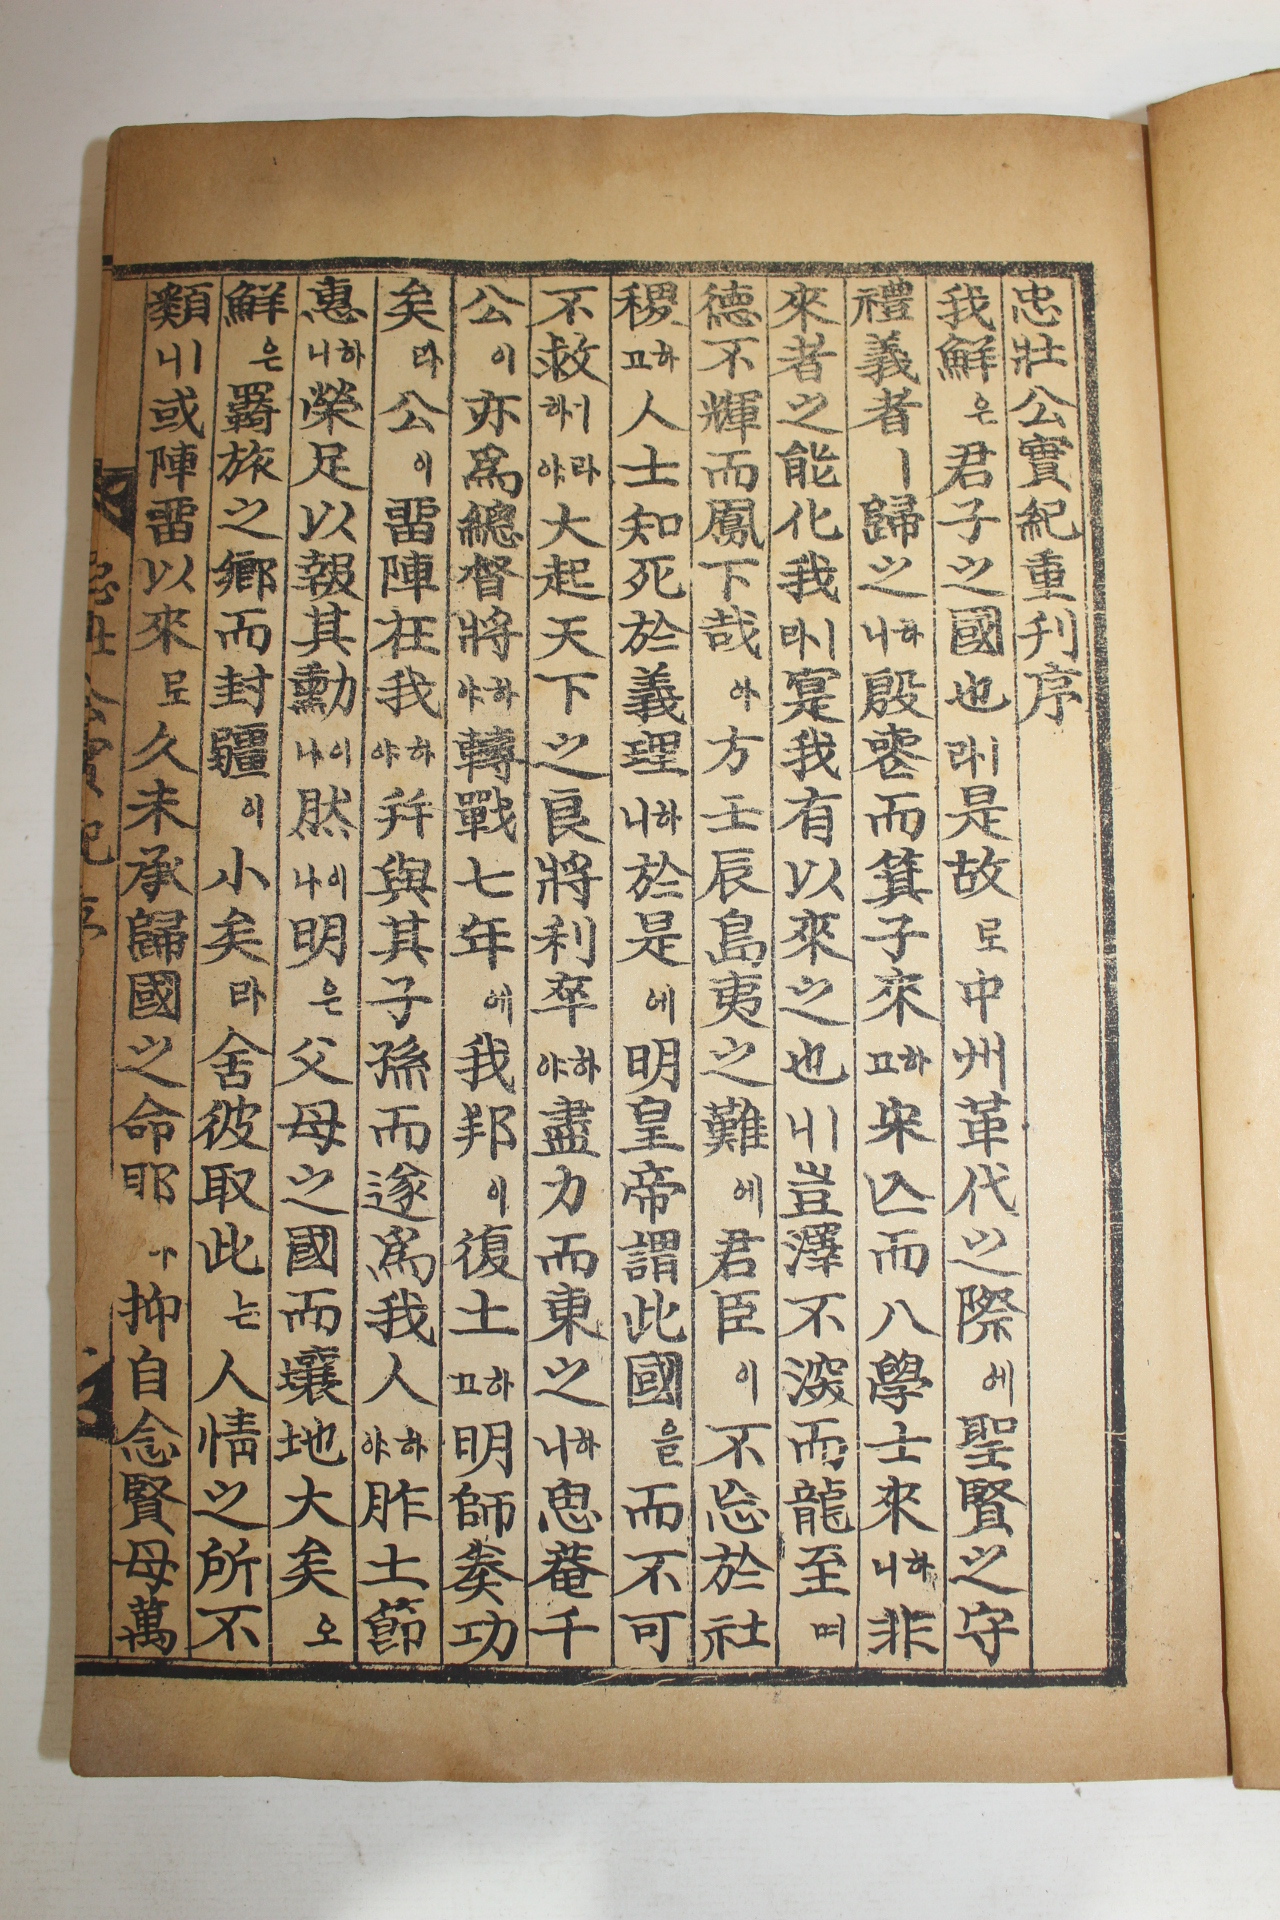 忠壯公實紀重刊序
我鮮은君子之國也라ㅣ是故로中州革代之際에聖賢之守
禮義者ㅣ歸之하니殷喪而箕子來하고宋亾而八學士來하니非
來者之能化我라ㅣ寔我有以來之也ㅣ니豈澤不深而龍至며
德不輝而鳳下哉아方壬辰島夷之難에君臣이不忘於社
稷하고人士知死於義理하니於是에明皇帝謂此國을而不可
不救ㅣ라하야大起天下之良將利卒하야盡力而東之하니思菴千
公이亦爲總督將하야轉戰七年에我邦이復土하고明師奏功
矣라公이留陣在我하야幷與其子孫而遂爲我人하야胙土節
惠하니榮足以報其勳이나然이나明은父母之國而壤地大矣오
鮮은羇旅之鄕而封疆이小矣라舍彼取此는人情之所不
類ㅣ니或陣留以來로久未承歸國之命耶아抑自念賢母萬